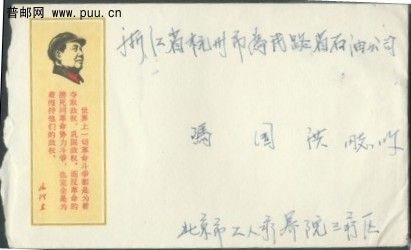 普邮网
www.puu.cn
浙江省杭州市 路省石油公司
世界上一切革命斗争都是为着
夺取政权,巩固政权。而反革命的
拼死同革命势力斗争,也完全是为
着维持他们的政权。
毛泽东
馮国 同志收
北京市工人疗养院三疗区